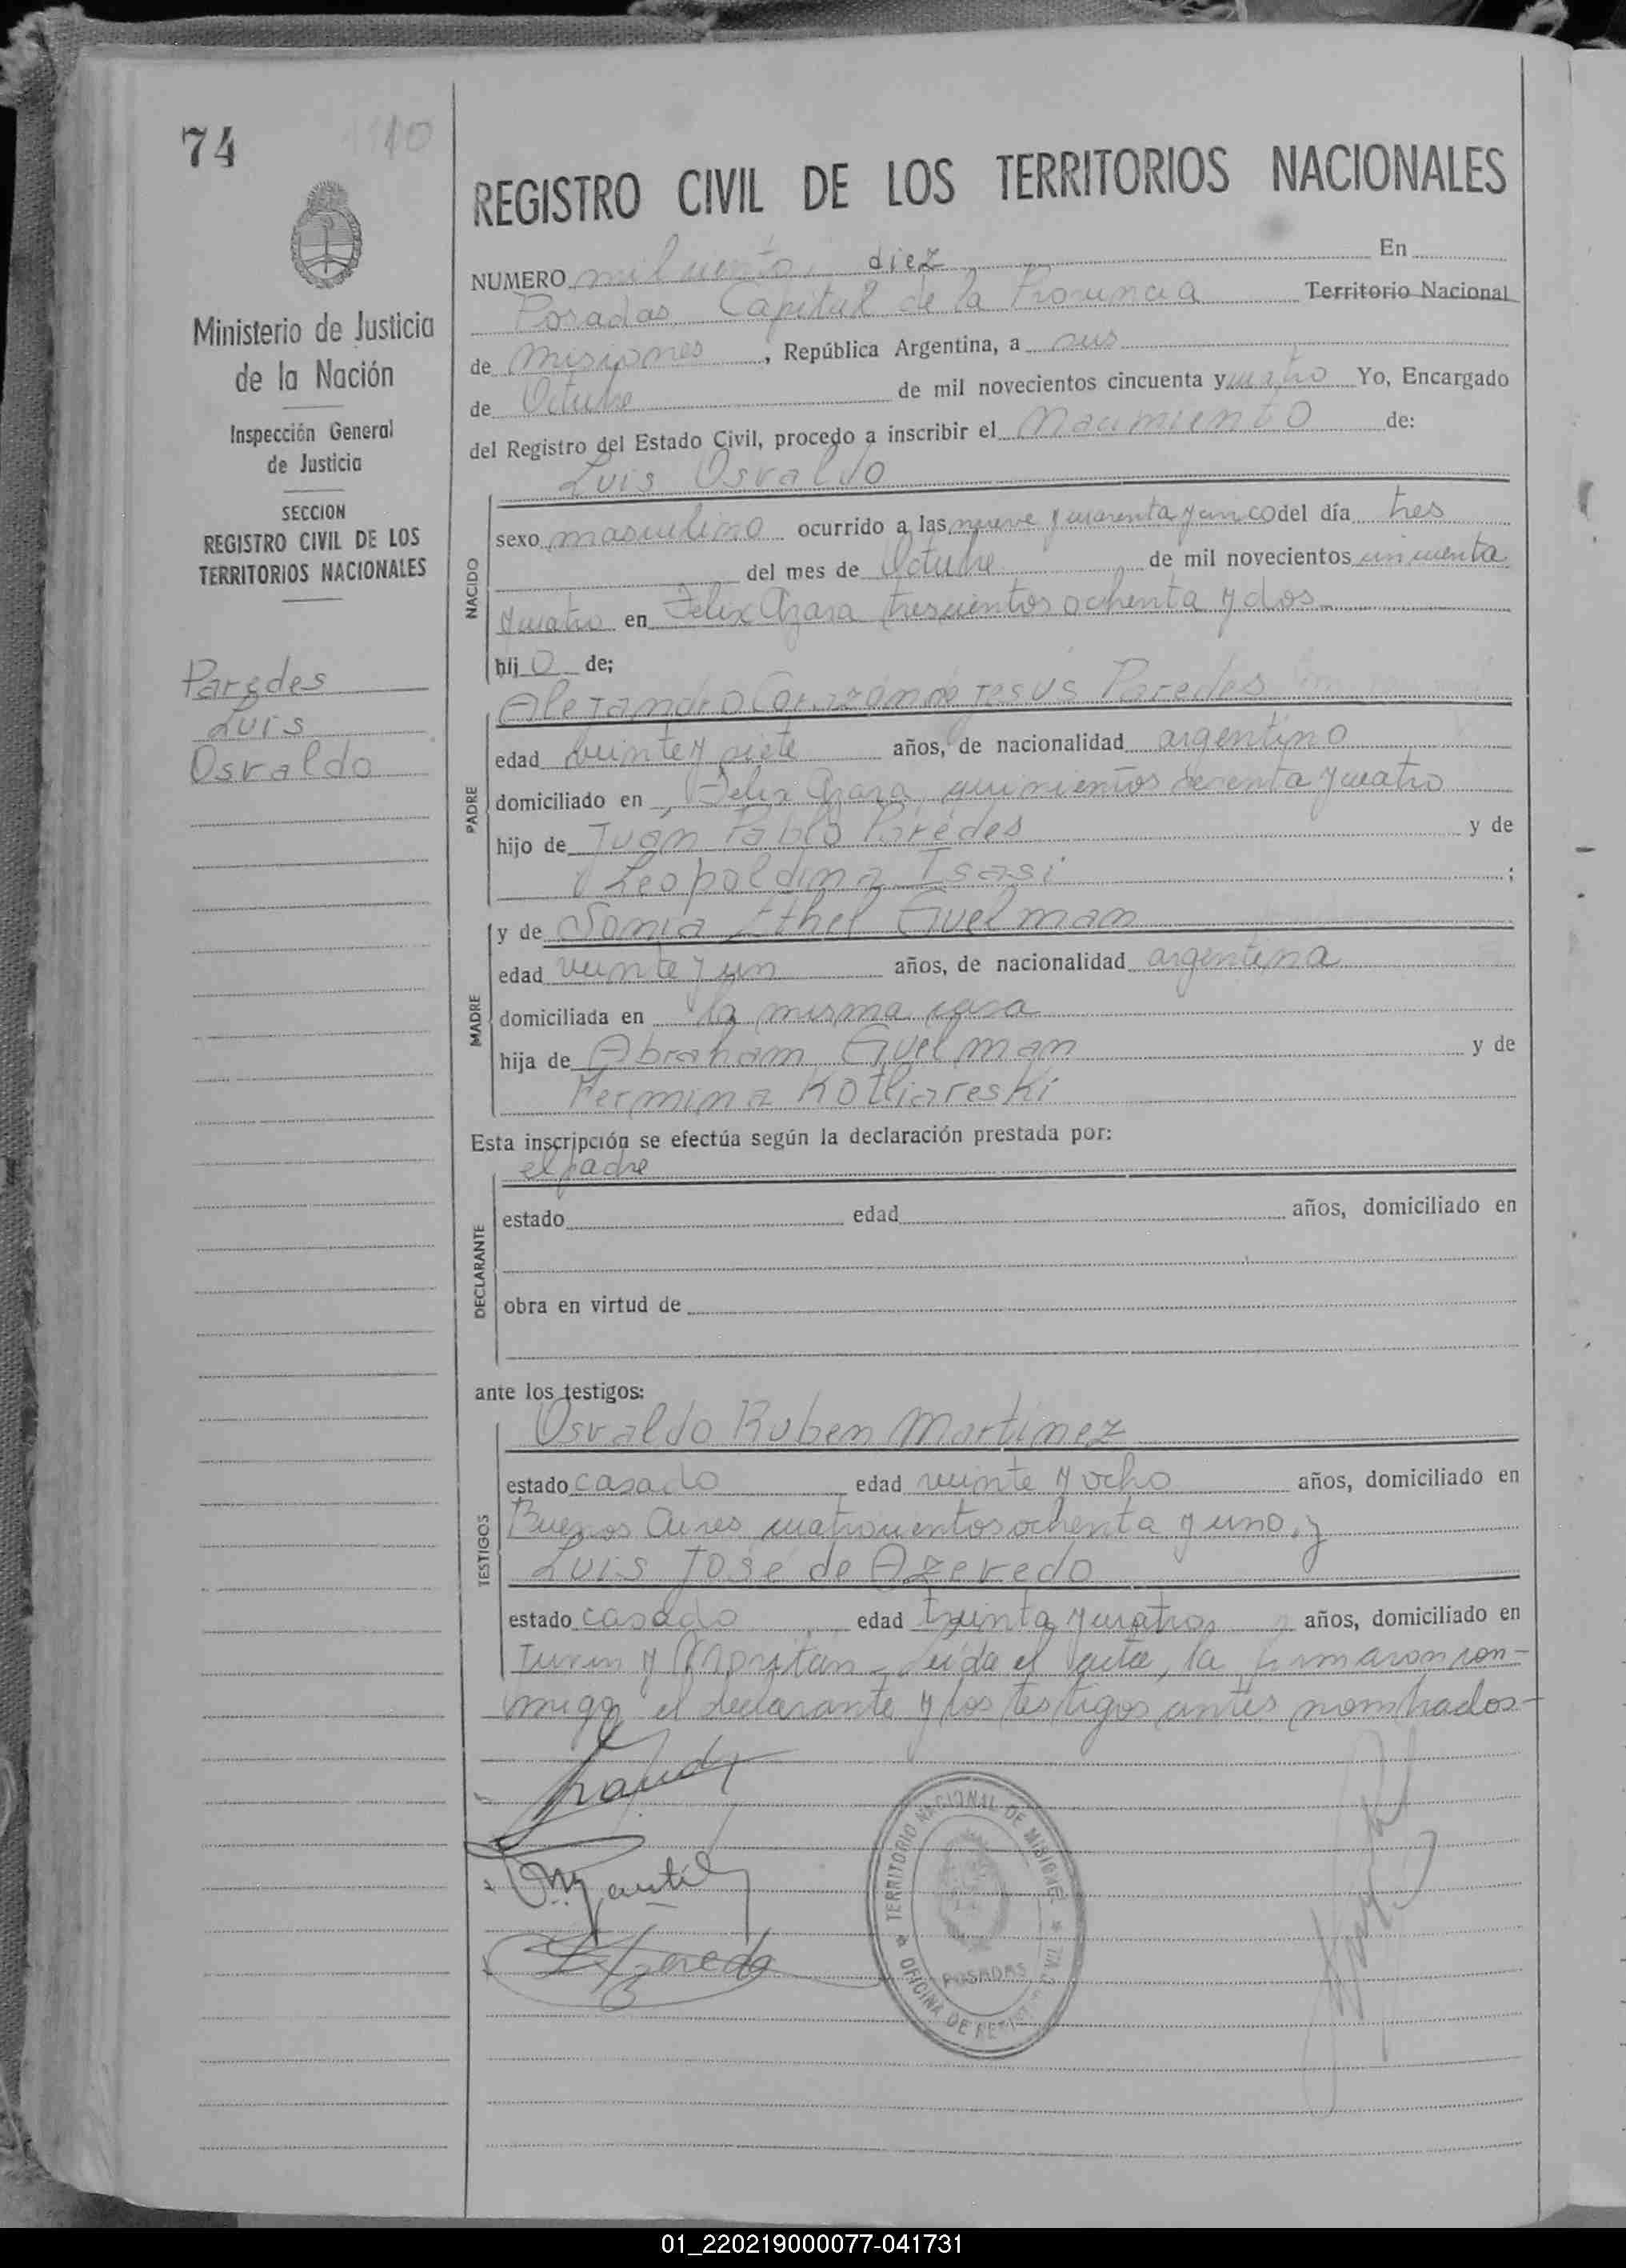 74
1110
Ministerio de Justicia
de la Nación
Inspección General
de Justicia
SECCION
REGISTRO CIVIL DE LOS
TERRITORIOS NACIONALES
Paredes
Luis
Osvaldo
REGISTRO CIVIL DE LOS TERRITORIOS NACIONALES
NUMERO mil ciento diez En
Posadas, Capital de la Provincia Territorio Nacional
de Misiones, República Argentina, a seis
de Octubre de mil novecientos cincuenta y cuatro Yo, Encargado
del Registro del Estado Civil, procedo a inscribir el Nacimiento de:
Luis Osvaldo
NACIDO
sexo masculino ocurrido a las nueve y cuarenta y cinco del día tres
del mes de Octubre de mil novecientos cincuenta
y cuatro en Felix Azara trescientos ochenta y dos
hijo de;
Alejandro Corazón de Jesus Paredes
PADRE
edad veinte y siete años, de nacionalidad argentino
domiciliado en Felix Azara quinientos sesenta y cuatro
hijo de Juan Pablo Paredes y de
Leopoldina Isasi ;
MADRE
y de Sonia Ethel Guelman
edad veinte y un años, de nacionalidad argentina
domiciliada en la misma casa
hija de Abraham Guelman y de
Fermina Kotliareski
Esta inscripción se efectúa según la declaración prestada por:
el padre
DECLARANTE
estado edad años, domiciliado en
obra en virtud de
ante los testigos:
TESTIGOS
Osvaldo Ruben Martinez
estado casado edad veinte y ocho años, domiciliado en
Buenos Aires cuatrocientos ochenta y uno, y
Luis José de Azevedo
estado casado edad treinta y cuatro años, domiciliado en
Junin y Moritán - Leída el acta, la firmaron con-
migo el declarante y los testigos antes nombrados-
TERRITORIO NACIONAL DE MISIONES
POSADAS
OFICINA DE
01_220219000077-041731